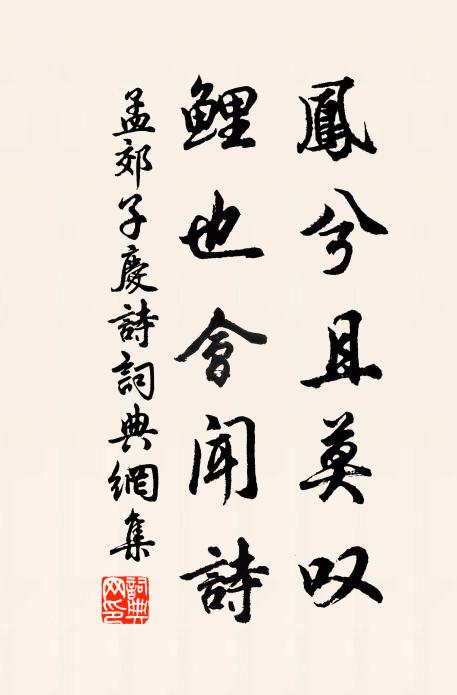 鳳兮且莫叹
鯉也會聞詩
孟郊子慶詩詞典網集
詞典網印